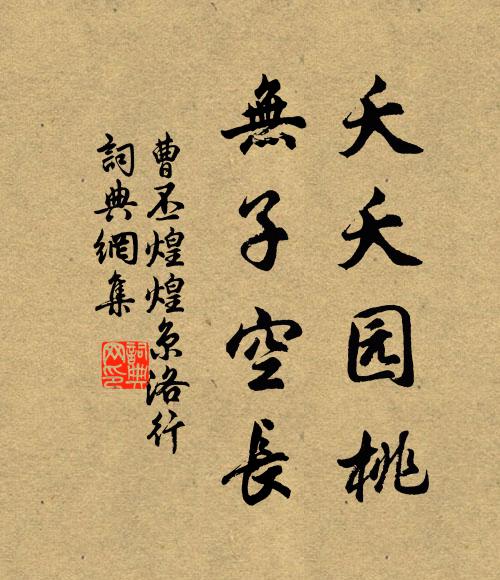 夭夭园桃
無子空長
曹丕煌煌京洛行
詞典網集
詞典
网印